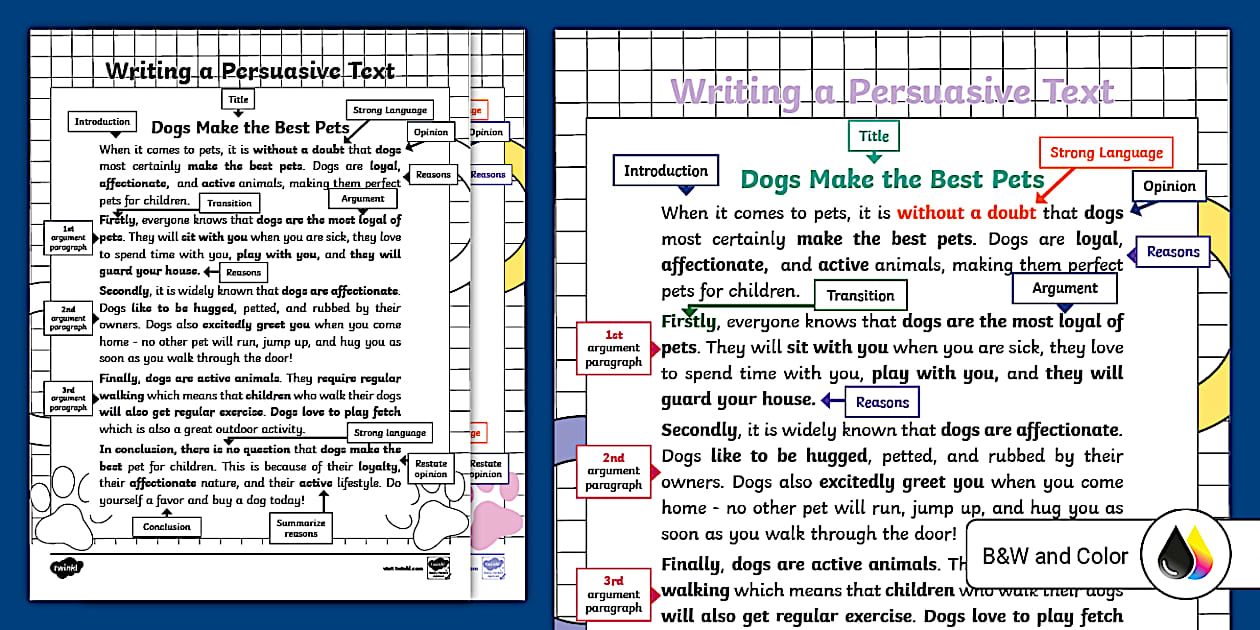 Writing a Persuasive Text
Title
Strong Language
Introduction
Dogs Make the Best Pets
Opinion
When it comes to pets, it is without a doubt that dogs
most certainly make the best pets. Dogs are loyal,
Reasons
affectionate, and active animals, making them perfect
Argument
pets for children.
Transition
Firstly, everyone knows that dogs are the most loyal of
1st
argument
paragraph
pets. They will sit with you when you are sick, they love
to spend time with you, play with you, and they will
guard your house.
Reasons
Secondly, it is widely known that dogs are affectionate.
2nd
argument
paragraph
Dogs like to be hugged, petted, and rubbed by their
owners. Dogs also excitedly greet you when you come
home - no other pet will run, jump up, and hug you as
soon as you walk through the door!
Finally, dogs are active animals. They require regular
3rd
argument
paragraph
walking which means that children who walk their dogs
will also get regular exercise. Dogs love to play fetch
which is also a great outdoor activity.
Strong language
In conclusion, there is no question that dogs make the
best pet for children. This is because of their loyalty,
Restate
opinion
their affectionate nature, and their active lifestyle. Do
yourself a favor and buy a dog today!
Conclusion
Summarize
reasons
twinkl
visit twinkl.com
ge
Opinion
Reasons
ge
Restate
opinion
Writing a Persuasive Text
Title
Strong Language
Introduction
Dogs Make the Best Pets
Opinion
When it comes to pets, it is without a doubt that dogs
most certainly make the best pets. Dogs are loyal,
Reasons
affectionate, and active animals, making them perfect
Argument
pets for children.
Transition
Firstly, everyone knows that dogs are the most loyal of
1st
argument
paragraph
pets. They will sit with you when you are sick, they love
to spend time with you, play with you, and they will
guard your house.
Reasons
Secondly, it is widely known that dogs are affectionate.
2nd
argument
paragraph
Dogs like to be hugged, petted, and rubbed by their
owners. Dogs also excitedly greet you when you come
home - no other pet will run, jump up, and hug you as
soon as you walk through the door!
B&W and Color
Finally, dogs are active animals. Th
3rd
argument
paragraph
walking which means that children who walk their dogs
will also get regular exercise. Dogs love to play fetch